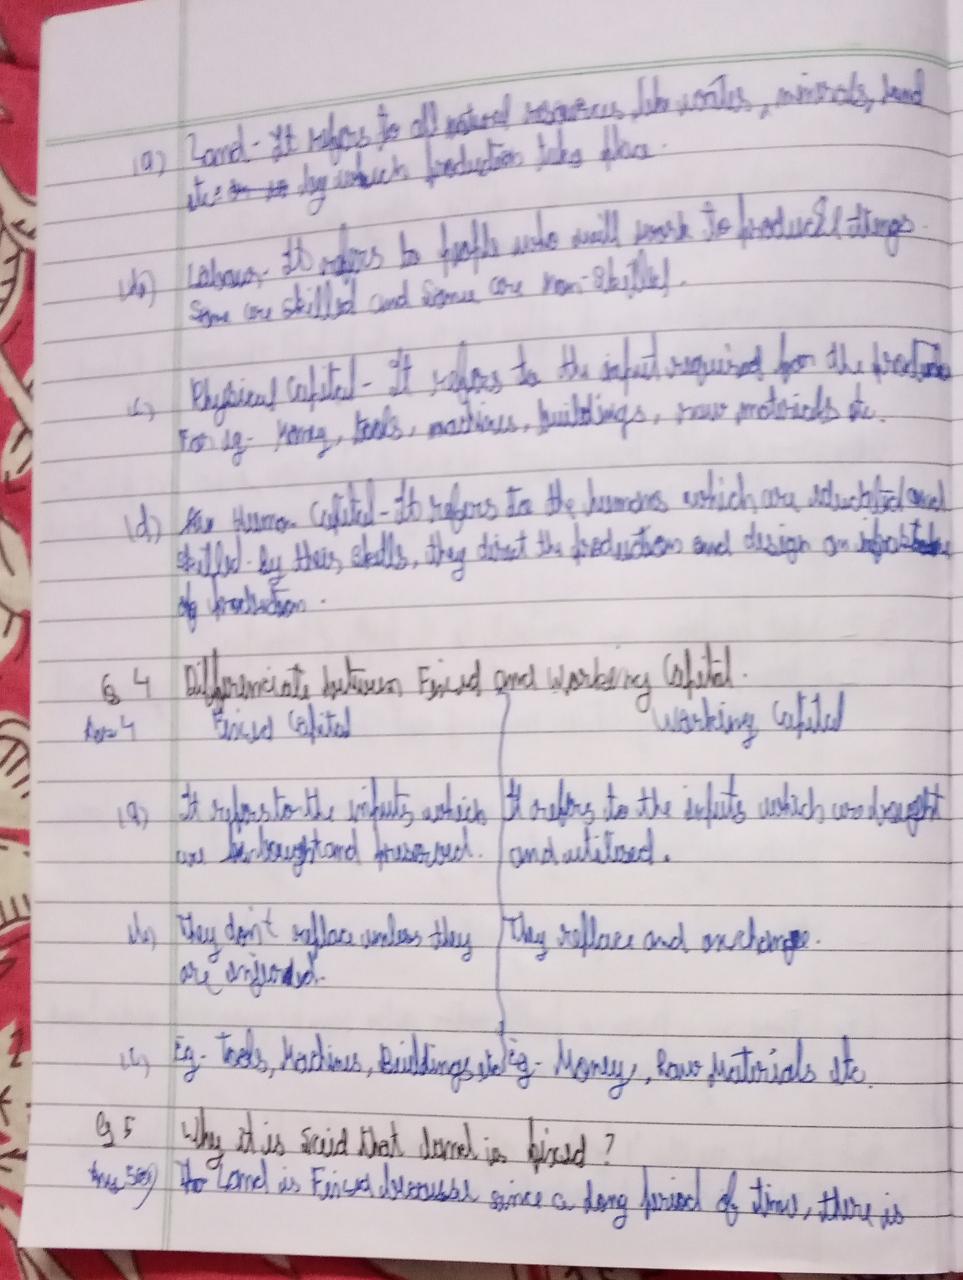 (a) Land - It refers to all natural resources like water, minerals, land
etc. by which production take place.
(b) Labour - It refers to people who will work to produce things.
Some are skilled and some are non-skilled.
(c) Physical Capital - It refers to the input required for the
For eg - Money, tools, machines, buildings, raw materials etc.
(d) Human Capital - It refers to the humans which are educated and
skilled. By their skills, they direct the production and design an
of production.
Q 4 Differenciate between Fixed and Working Capital.
Ans 4 Fixed Capital Working Capital
(a) It refers to the inputs which It refers to the inputs which are bought
are bought and preserved. and utilised.
(b) They don't replace unless they They replace and
are
(c) Eg - Tools, Machines, Buildings etc Eg - Money, Raw Materials etc.
Q 5 Why it is said that land is fixed?
Ans 5 (a) Land is Fixed because since a long period of time, there is